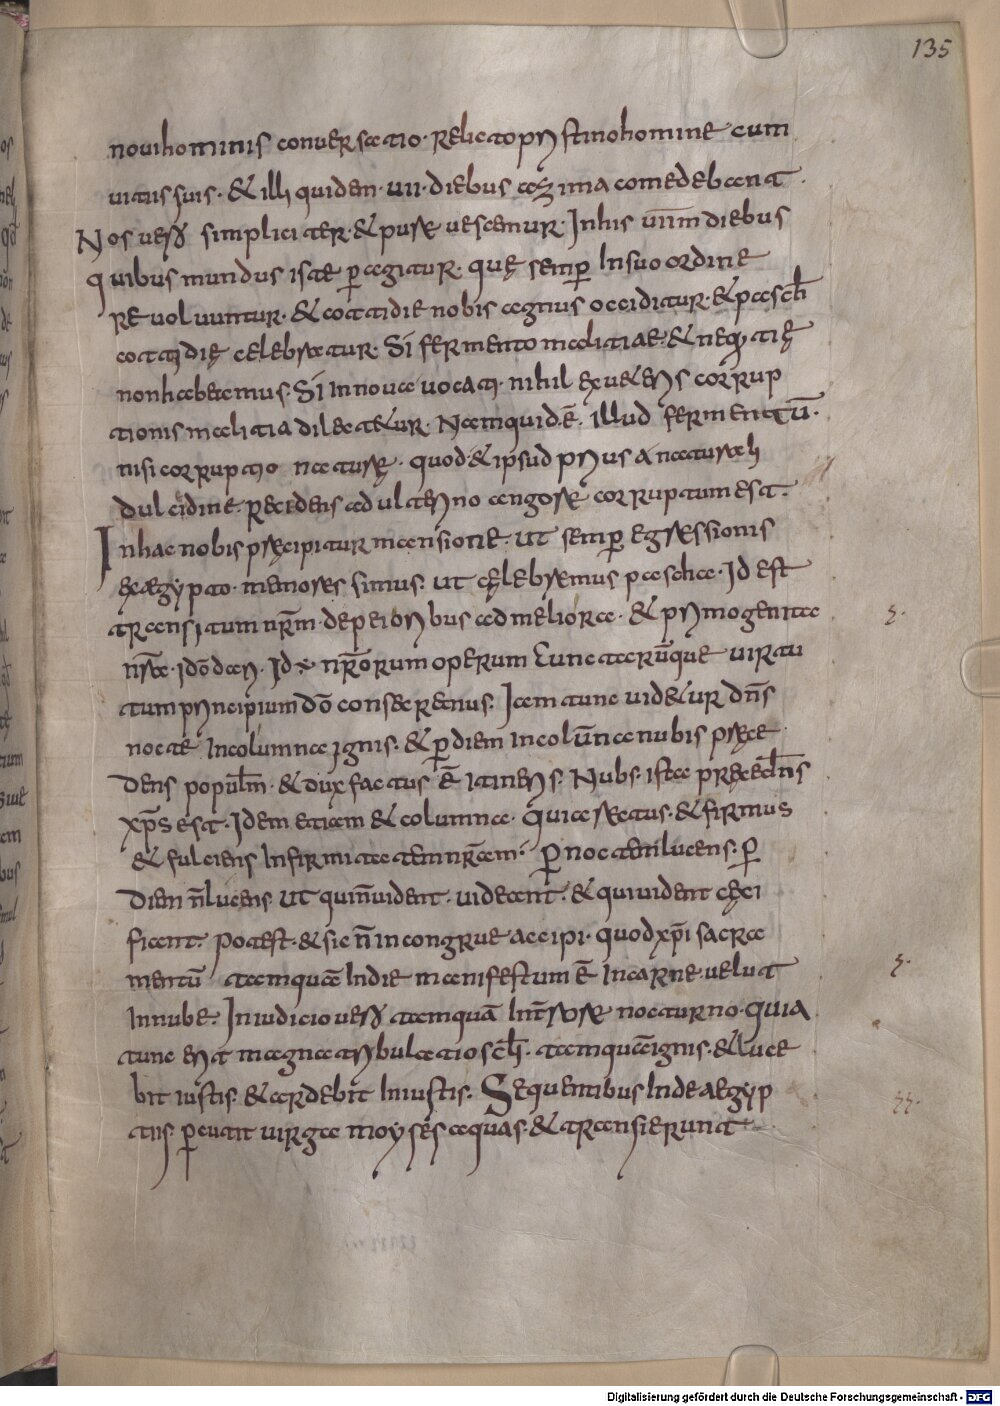 135
novi hominis conversatio. relicto pristino homine cum
vitiis suis. & illi quidem. vii. diebus azima comedebant.
Nos vero simpliciter & pure vescemur. In his vii diebus
quibus mundus iste pagitur. quę semp in suo ordine
revoluuntur. & cottidie nobis agnus occiditur. & pascha
cottidię celebratur. Si fermento malitiae & nequitię
non habetemus. Si in nova vocati. nihil ęx veteris corrup
tionis malitia diletetur. Namquid. ē. illud fermentū.
nisi corruptio naturę. quod & ipsud prius a naturali
dulcidine. recidens ad ulterino angore corruptum est.
In hac nobis pręcipitur mansione. ut semp egressionis
ęx ægypto. memores simus. ut cęlebremus pascha. Id est
transitum nrm. de peioribus ad meliora. & primogenita
nra. id dō dari. Id nrorum operum
tum principium dō consecremus. Iam tunc videtur dns
nocte in columna ignis. & p diem in columna nubis pręce
dens populm. & dux factus ē itineris. Nubs. ista
xps est. Idem etiam & columna. quia rectus. & firmus
& fulciens infirmitatem nram. p noctem lucens. p
diem n lucens ut qui n vident. videant. & qui vident cęci
fiant. Potest. & sic n incongrue accipi. quod xpi sacra
mentū tamquā in die manifestum ē in carne. velut
in nube. In iudicio vero tamquā in terrore nocturno. quia
tunc erit magna tribulatio scli. tamquā ignis. & luce
bit iustis. & ardebit iniustis. Sequentibus inde aegyp
tiis. pcutit virga moyses aquas. & transierunt
Digitalisierung gefördert durch die Deutsche Forschungsgemeinschaft - DFG